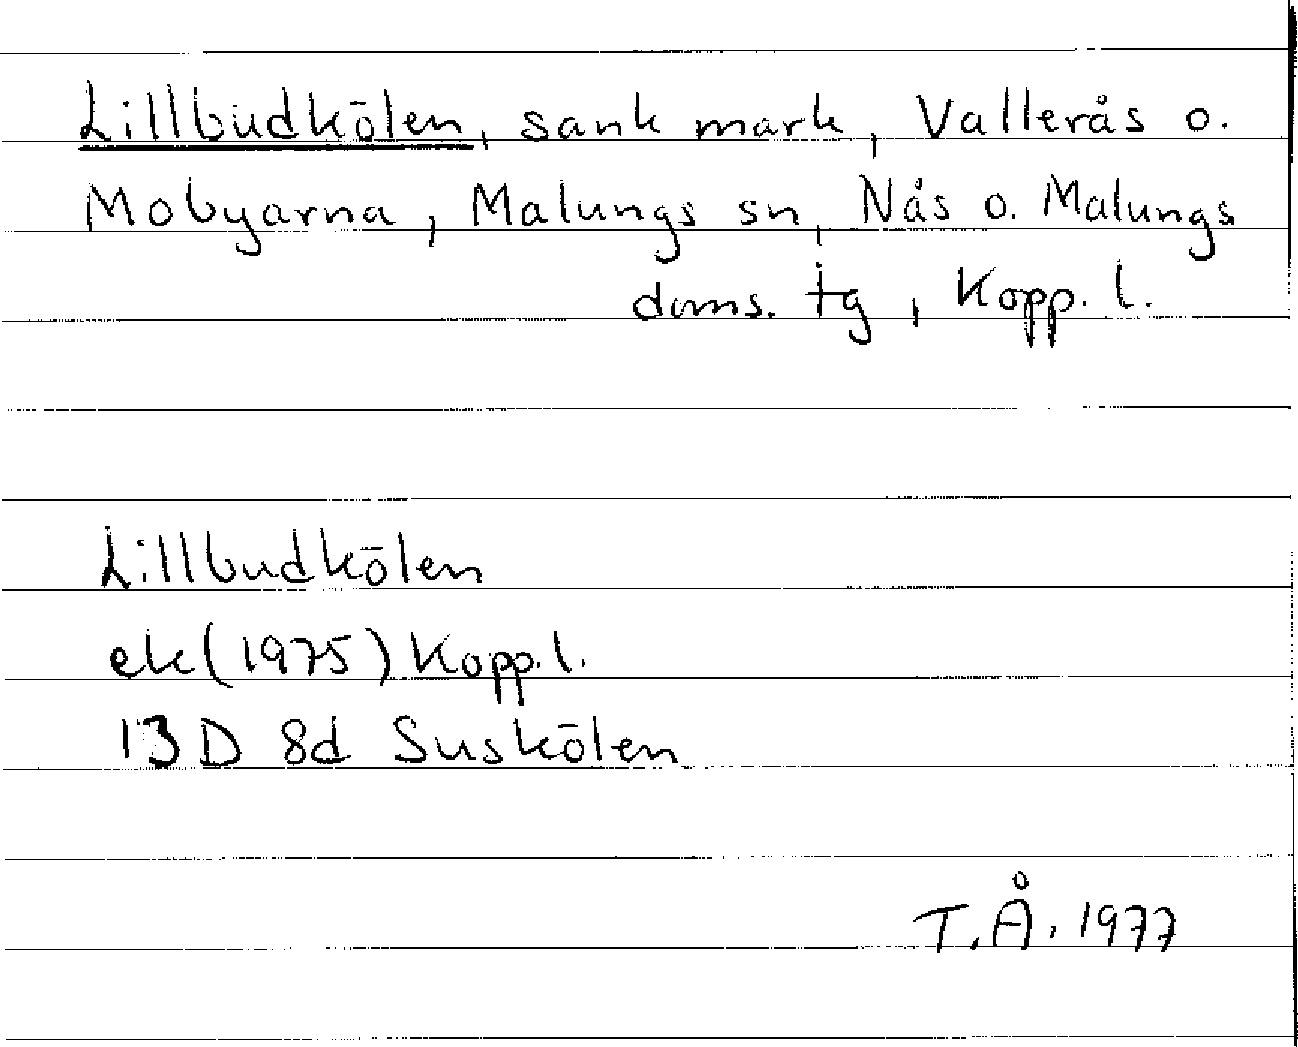 Lillbudkölen, sank mark, Vallerås o.
Mobyarna, Malungs sn, Nås o. Malungs
doms. tg, Kopp. l.
Lillbudkölen
ek (1975) Kopp. l.
13D 8d Suskölen
T.Å. 1977